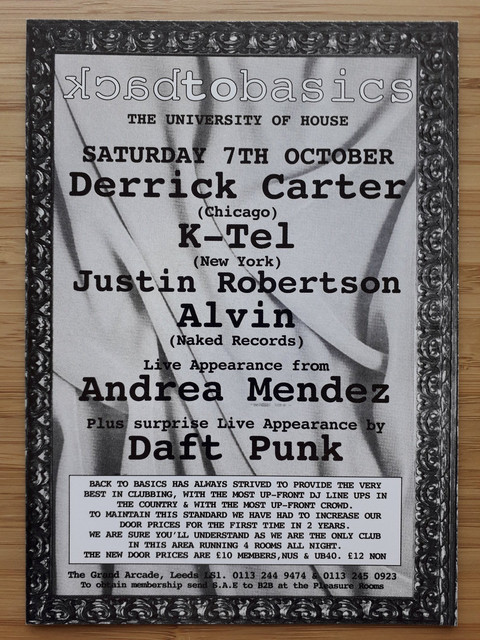 backtobasics
THE UNIVERSITY OF HOUSE
SATURDAY 7TH OCTOBER
Derrick Carter
(Chicago)
K-Tel
(New York)
Justin Robertson
Alvin
(Naked Records)
Live Appearance from
Andrea Mendez
Plus surprise Live Appearance by
Daft Punk
BACK TO BASICS HAS ALWAYS STRIVED TO PROVIDE THE VERY
BEST IN CLUBBING, WITH THE MOST UP-FRONT DJ LINE UPS IN
THE COUNTRY & WITH THE MOST UP-FRONT CROWD.
TO MAINTAIN THIS STANDARD WE HAVE HAD TO INCREASE OUR
DOOR PRICES FOR THE FIRST TIME IN 2 YEARS.
WE ARE SURE YOU'LL UNDERSTAND AS WE ARE THE ONLY CLUB
IN THIS AREA RUNNING 4 ROOMS ALL NIGHT.
THE NEW DOOR PRICES ARE £10 MEMBERS,NUS & UB40. £12 NON
The Grand Arcade, Leeds LS1. 0113 244 9474 & 0113 245 0923
To obtain membership send S.A.E to B2B at the Pleasure Rooms